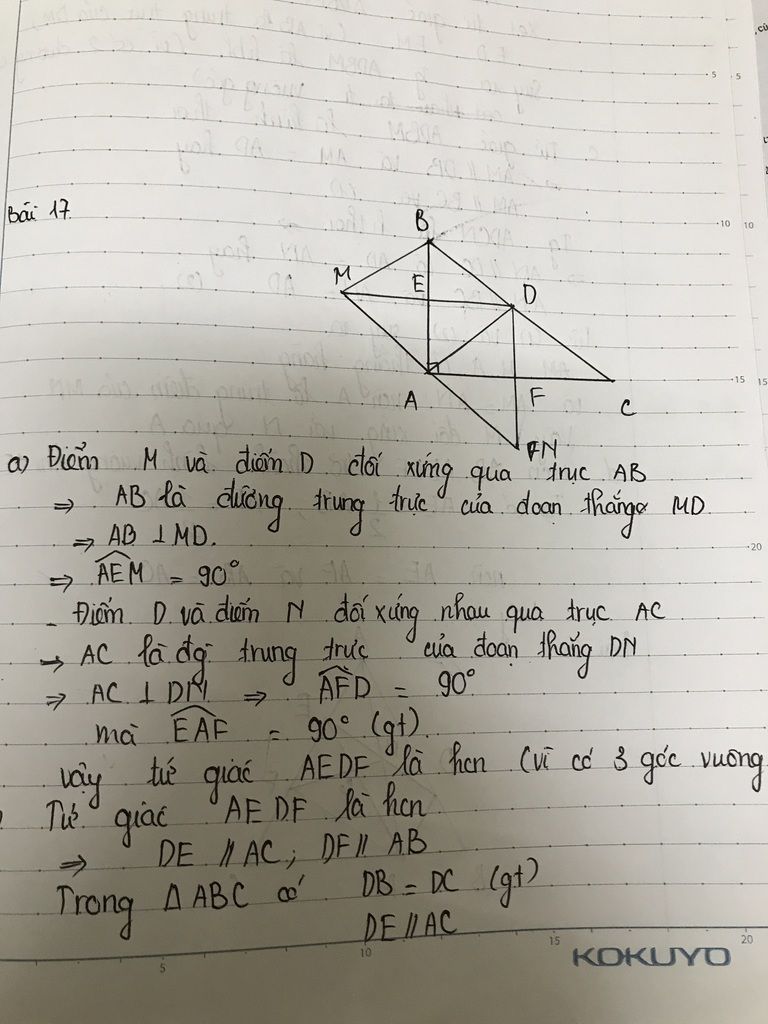 Bài 17.
B
M
E
D
A
F
C
N
a) Điểm M và điểm D đối xứng qua trục AB
⇒ AB là đường trung trực của đoạn thẳng MD
⇒ AB ⊥ MD.
⇒ AEM = 90°
- Điểm D và điểm N đối xứng nhau qua trục AC
→ AC là đg trung trực của đoạn thẳng DN
⇒ AC ⊥ DN ⇒ AFD = 90°
mà EAF = 90° (gt)
vậy tứ giác AEDF là hcn (vì có 3 góc vuông
Tứ giác AEDF là hcn
⇒ DE // AC; DF // AB
Trong Δ ABC có DB = DC (gt)
DE // AC
5 5
10 10
15 15
20
5 10 15 20
KOKUYO